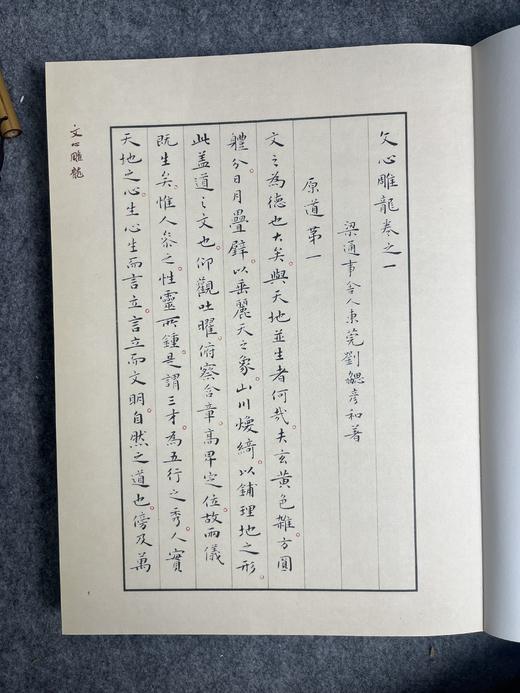 文心雕龍卷之一
梁通事舍人東莞劉勰彥和著
原道第一
文之為德也大矣。與天地並生者何哉。夫玄黃色雜。方圓
體分。日月疊璧。以垂麗天之象。山川煥綺。以鋪理地之形。
此蓋道之文也。仰觀吐曜。俯察含章。高卑定位。故兩儀
既生矣。惟人參之。性靈所鍾。是謂三才。為五行之秀。人實
天地之心生。心生而言立。言立而文明。自然之道也。傍及萬
文心雕龍